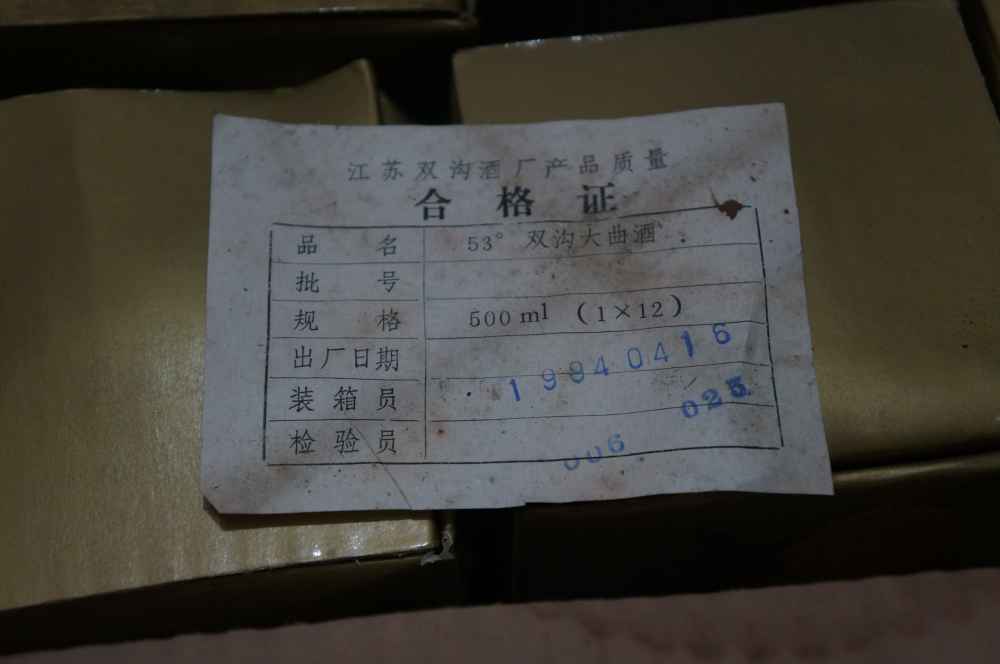 江苏双沟酒厂产品质量
合格证
品名 53° 双沟大曲酒
批号
规格 500ml (1×12)
出厂日期 19940416
装箱员 025
检验员 006